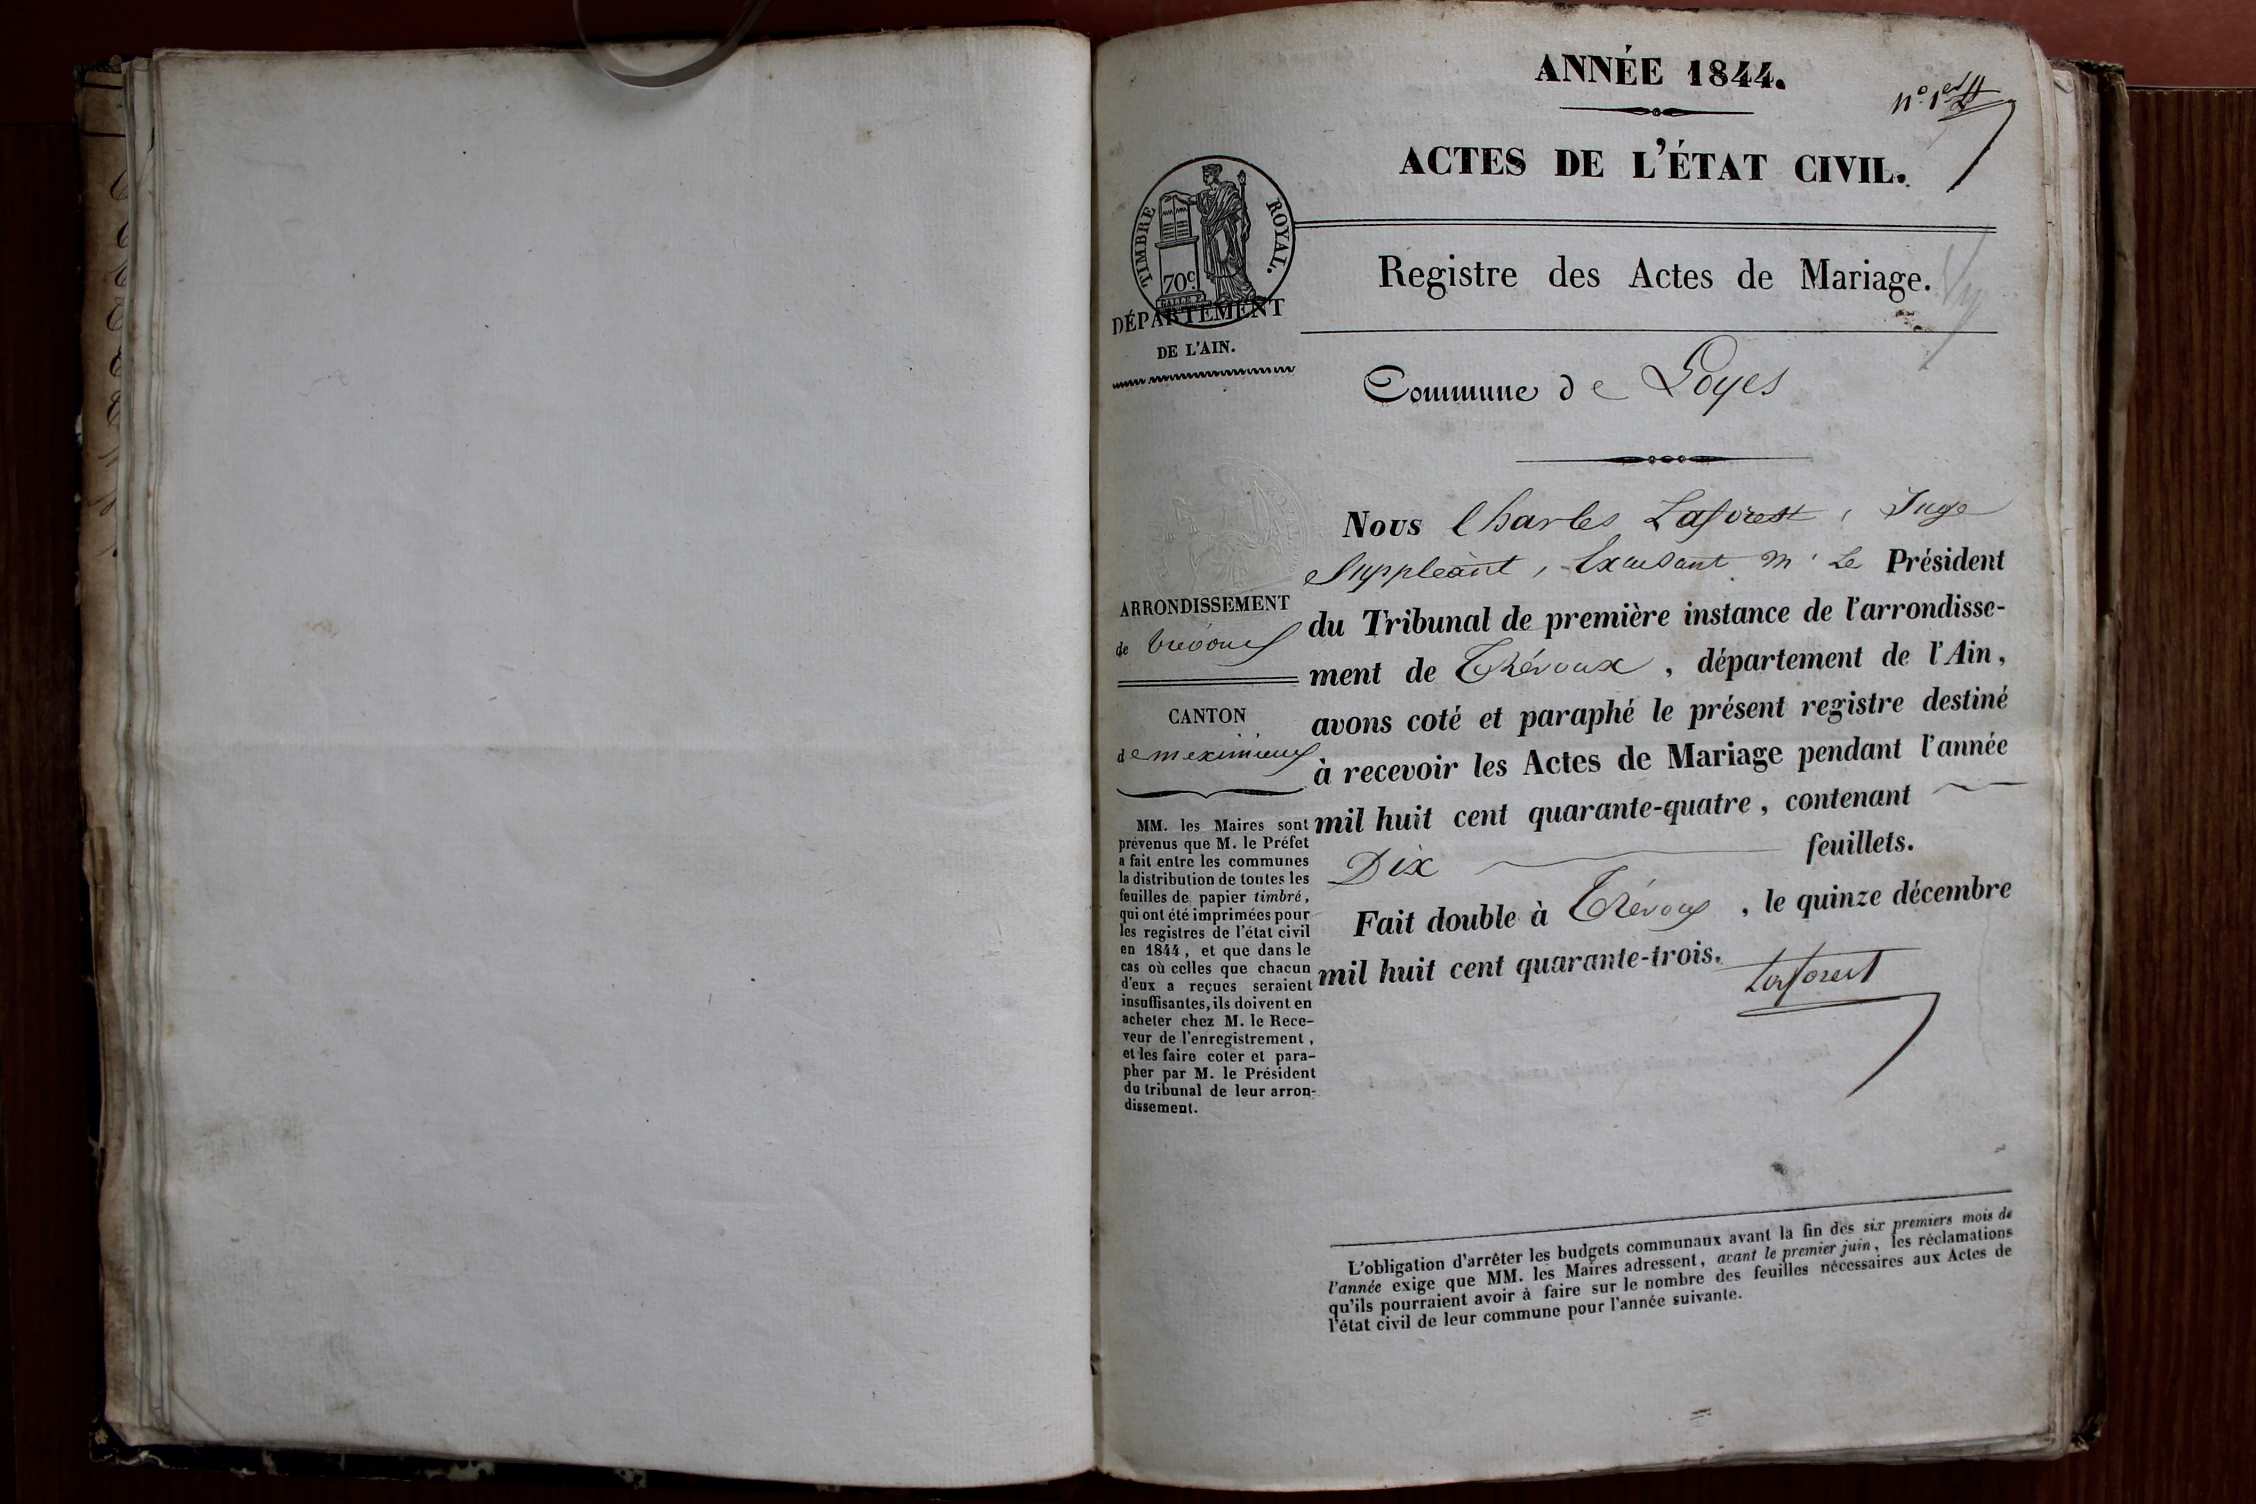 ANNÉE 1844.
n° 1er
ACTES DE L'ÉTAT CIVIL.
TIMBRE ROYAL.
70c
DÉPARTEMENT
DE L'AIN.
Registre des Actes de Mariage.
Commune de Loyes
ARRONDISSEMENT
de trévoux
CANTON
de meximieux
MM. les Maires sont
prévenus que M. le Préfet
a fait entre les communes
la distribution de toutes les
feuilles de papier timbré,
qui ont été imprimées pour
les registres de l'état civil
en 1844, et que dans le
cas où celles que chacun
d'eux a reçues seraient
insuffisantes, ils doivent en
acheter chez M. le Rece-
veur de l'enregistrement,
et les faire coter et para-
pher par M. le Président
du tribunal de leur arron-
dissement.
Nous Charles Laforest, Juge
Suppléant, Excusant mr Le Président
du Tribunal de première instance de l'arrondisse-
ment de Trévoux, département de l'Ain,
avons coté et paraphé le présent registre destiné
à recevoir les Actes de Mariage pendant l'année
mil huit cent quarante-quatre, contenant
Dix feuillets.
Fait double à Trévoux, le quinze décembre
mil huit cent quarante-trois.
Laforest
L'obligation d'arrêter les budgets communaux avant la fin des six premiers mois de
l'année exige que MM. les Maires adressent, avant le premier juin, les réclamations
qu'ils pourraient avoir à faire sur le nombre des feuilles nécessaires aux Actes de
l'état civil de leur commune pour l'année suivante.